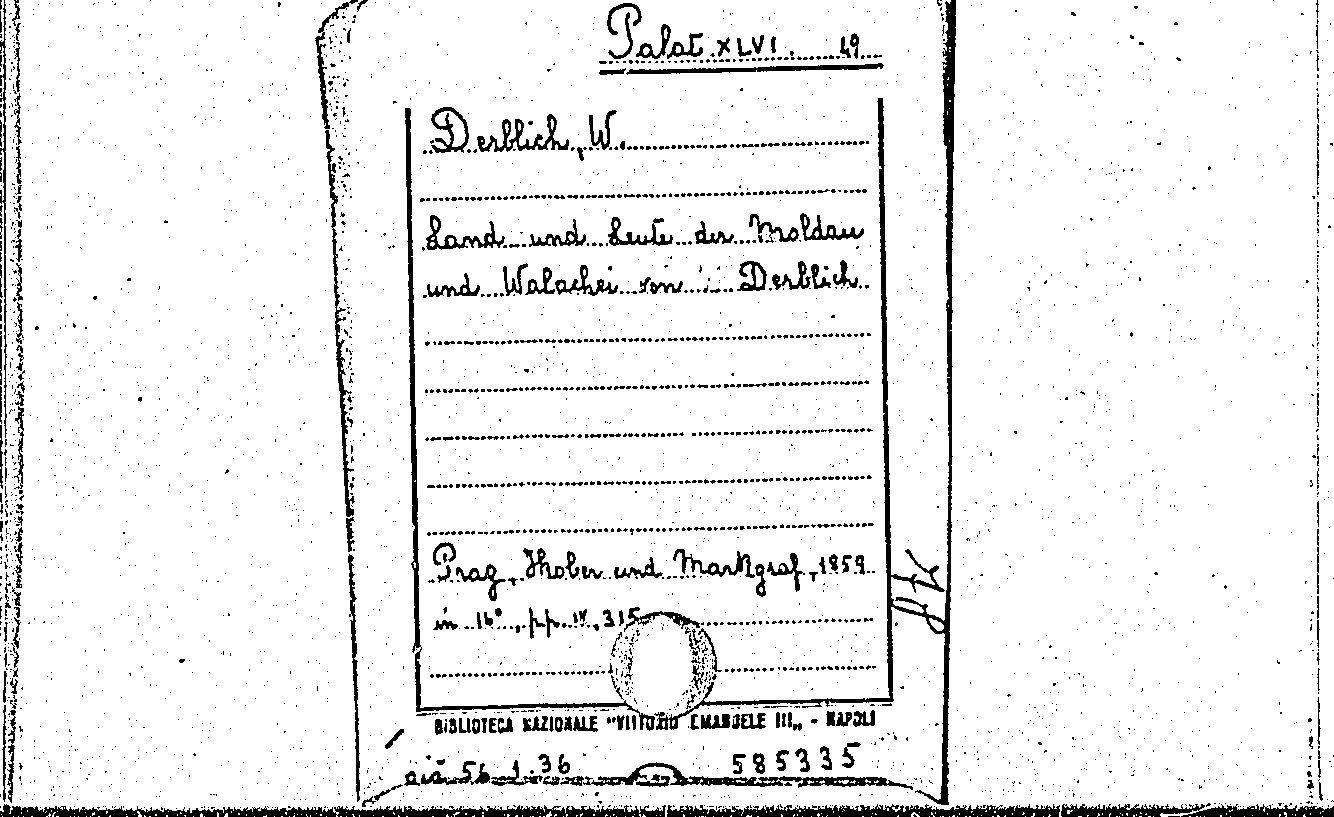 Palat. XLVI. 49
Derblich, W.
Land und Leute der Moldau
und Walachei von Derblich
Prag, Thober und Markgraf, 1859
in 16°, pp. IV, 315
BIBLIOTECA NAZIONALE "VITTORIO EMANUELE III„ - NAPOLI
già 56 1.36 585335